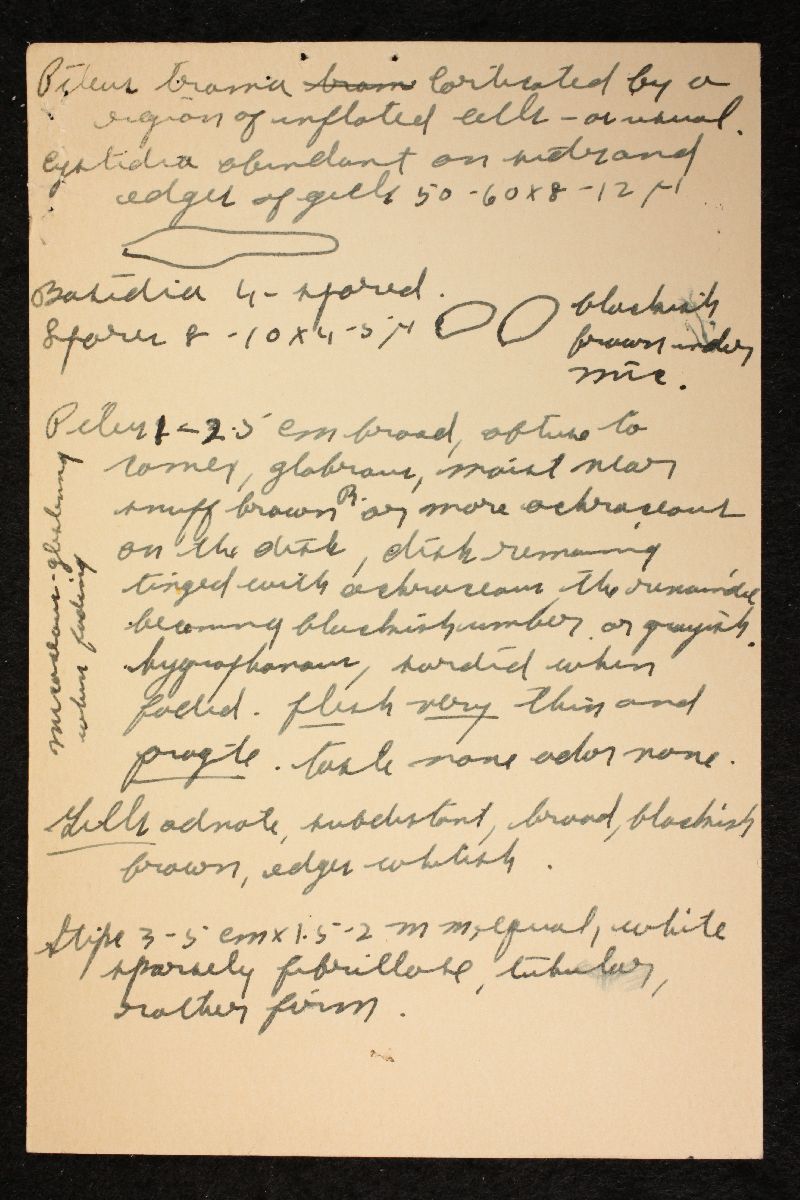 Pileus trama tram corticated by a
region of inflated cells - as usual.
Cystidia abundant on sides and
edges of gills 50-60 x 8-12 μ
Basidia 4-spored.
Spores 8-10 x 4-5 μ blackish
brown under
mic.
Pileus 1-2.5 cm broad, obtuse to
convex, glabrous, moist near
snuff brown R. or more ochraceous
on the disk, disk remaining
tinged with ochraceous, the remainder
becoming blackish umber or grayish.
hygrophanous, sordid when
faded. flesh very thin and
fragile. taste none odor none.
micaceous-glistening
when fading
Gills adnate, subdistant, broad, blackish
brown, edges whitish.
Stipe 3-5 cm x 1.5-2 mm, equal, white
sparsely fibrillose, tubular,
rather firm.